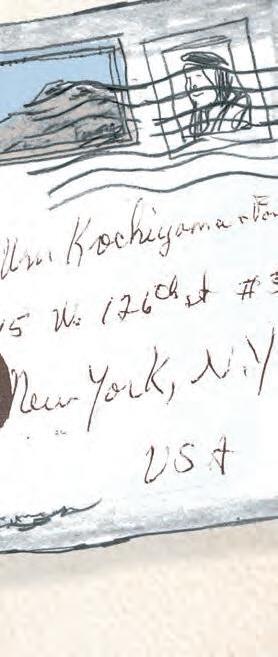 Kochiyama
W. 126th st #3
New York, N.Y
USA